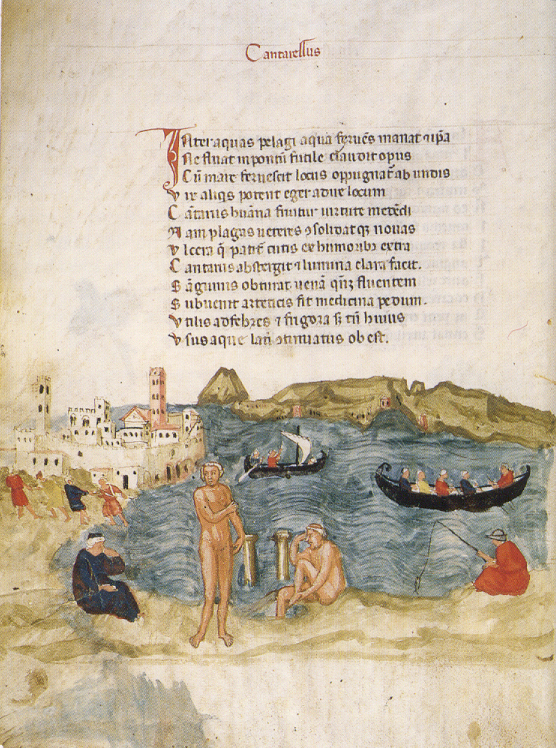 Cantarellus
INter aquas pelagi aqua feruēs manat ⁊ ipā
Ne fluat in pontū futile claudit opus
Cū mare feruescit locus oppugnat᷑ ab undis
Vix aliqs poterit eger adire locum
Cātarus huāna fruitur uirtute medēdi
Nam plagas ueteres ⁊ solidatqꝫ nouas
Vlcera q̄ patit᷑ cutis ex humoribꝫ extra
Cantarus abstergit ⁊ lumina clara facit.
Sāguinis obturat uenā fluentem
Subuenit arteticis fit medicina pedum.
Vtilis ad febres ⁊ frigora si tn̄ huius
Vsus aque ↄtinuatus obest.